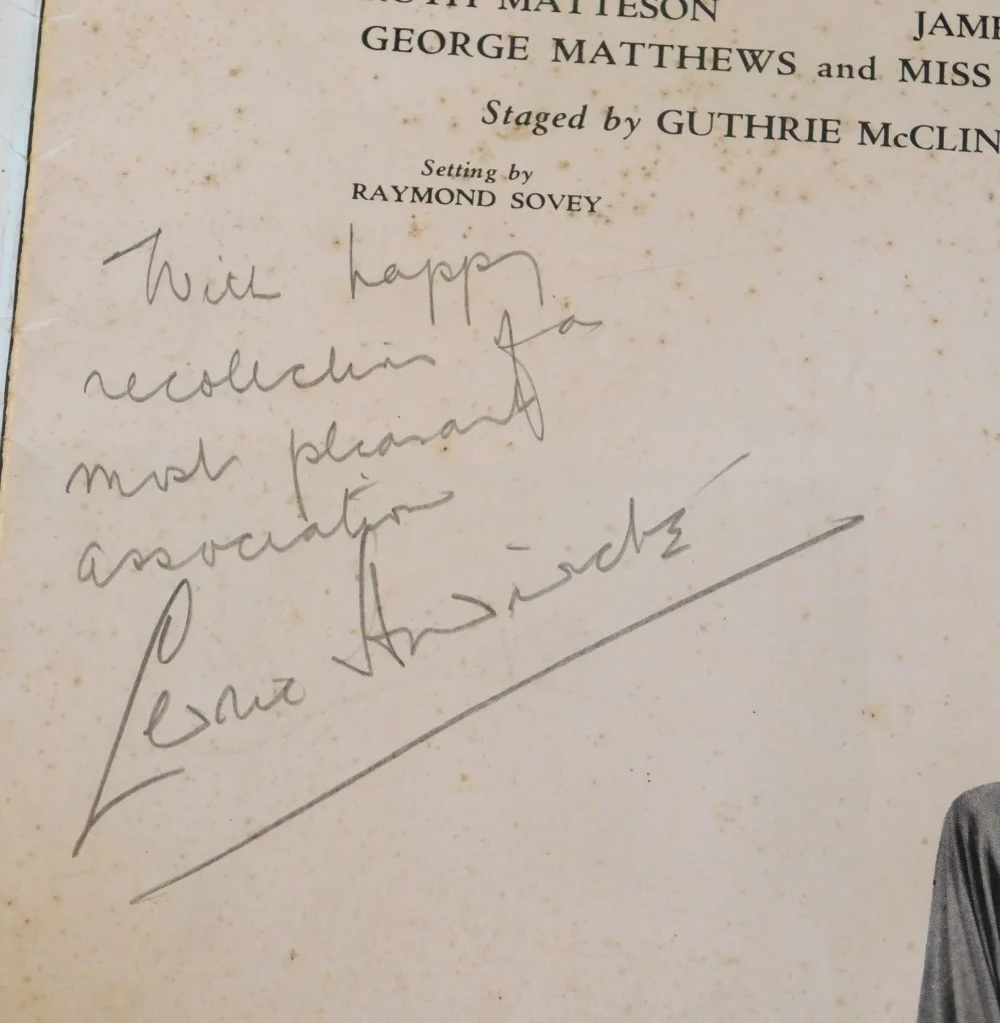 UTH MATTESON JAME
GEORGE MATTHEWS and MISS
Staged by GUTHRIE McCLIN
Setting by
RAYMOND SOVEY
With happy
recollection of a
most pleasant
association
Cedric Hardwicke